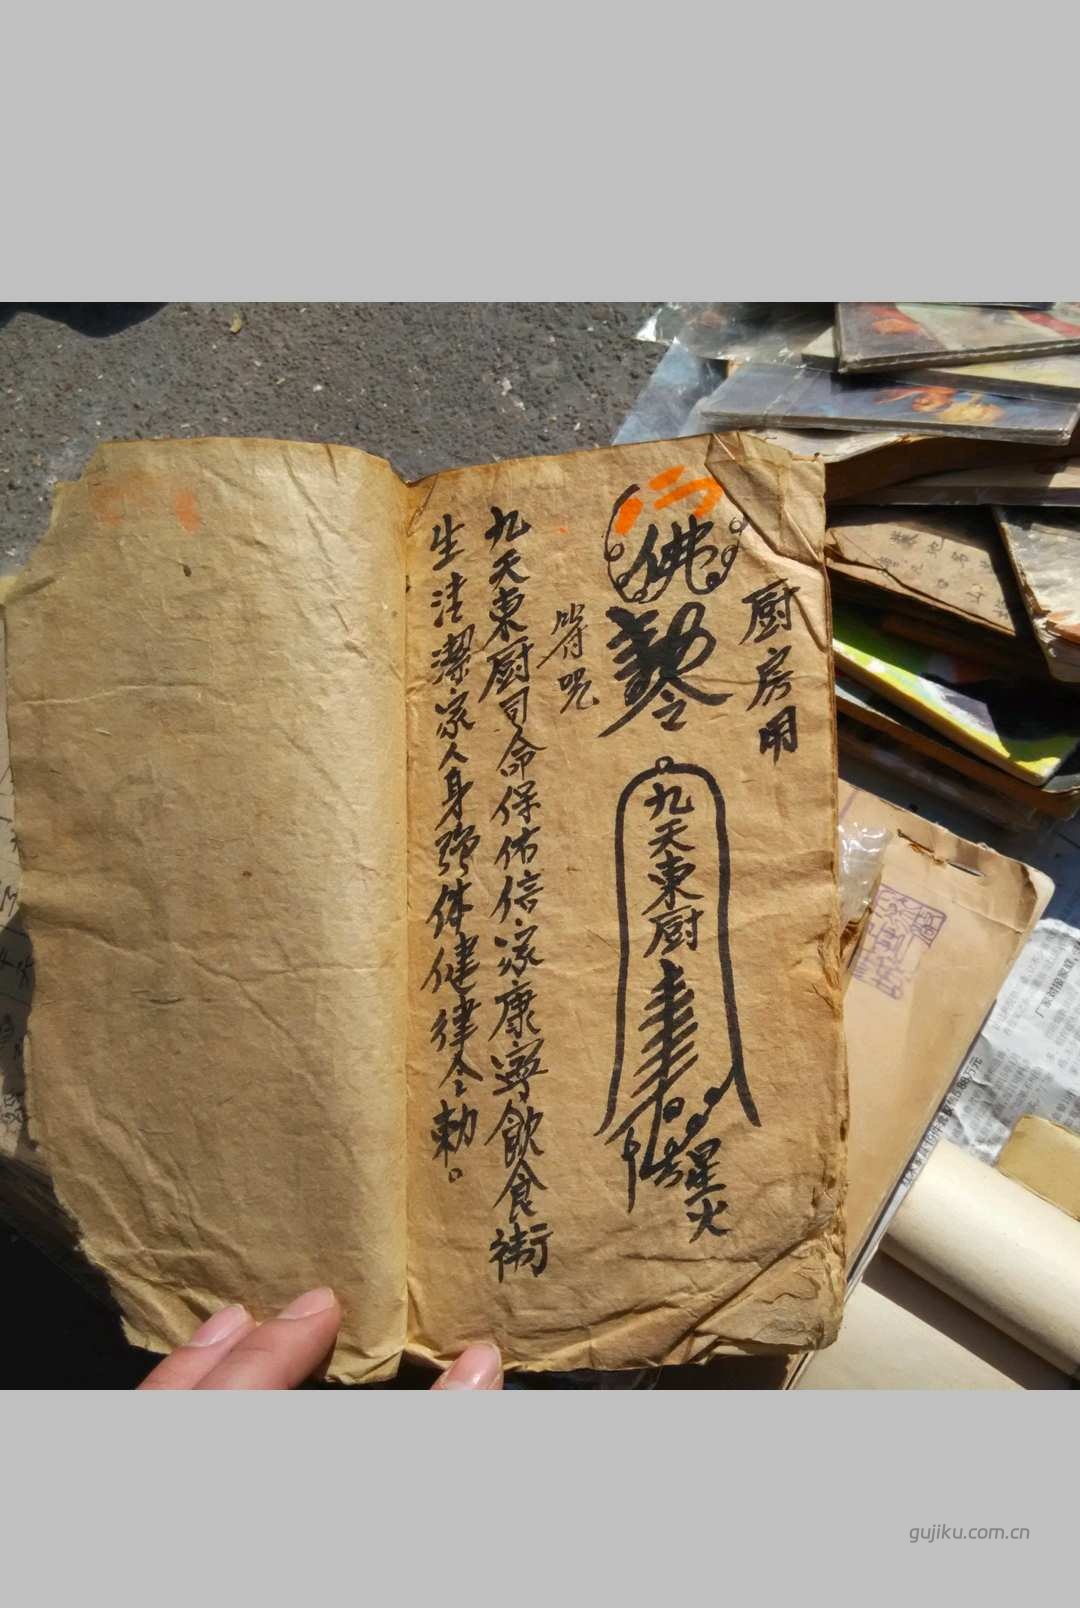 厨房用
佛
勅令
九天東厨
星火
符咒
九天東厨司命保佑信家康寧飲食衛
生清潔家人身強体健律令勅。
gujiku.com.cn